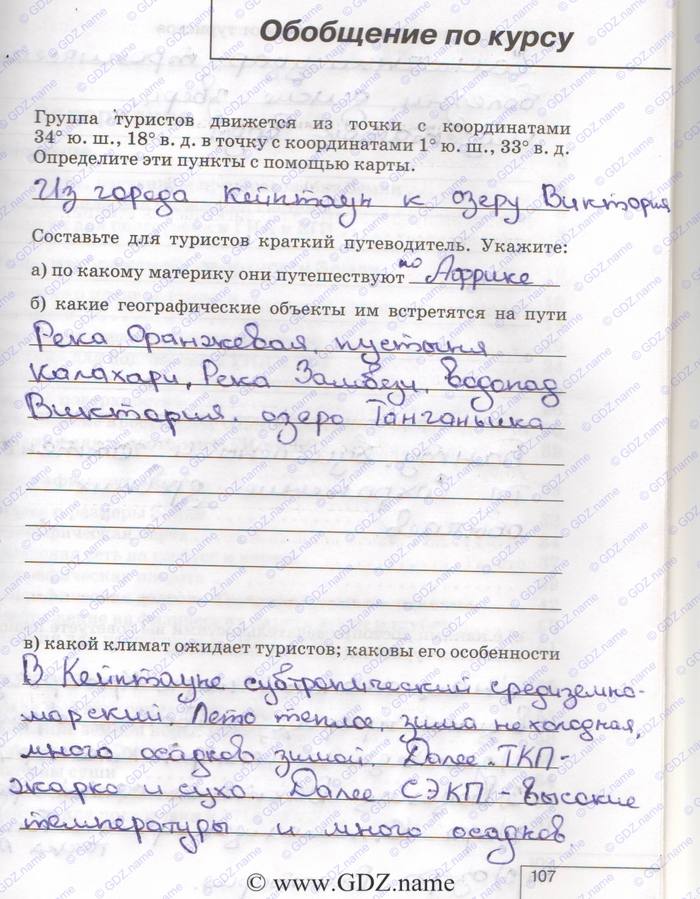 Обобщение по курсу
Группа туристов движется из точки с координатами
34° ю. ш., 18° в. д. в точку с координатами 1° ю. ш., 33° в. д.
Определите эти пункты с помощью карты.
Из города Кейптаун к озеру Виктория
Составьте для туристов краткий путеводитель. Укажите:
а) по какому материку они путешествуют по Африке
б) какие географические объекты им встретятся на пути
Река Оранжевая, пустыня
Калахари, Река Замбези, водопад
Виктория, озеро Танганьика
в) какой климат ожидает туристов; каковы его особенности
В Кейптауне субтропический средиземно-
морский. Лето теплое, зима нехолодная,
много осадков зимой. Далее ТКП-
жарко и сухо. Далее СЭКП - высокие
температуры и много осадков.
107
© www.GDZ.name